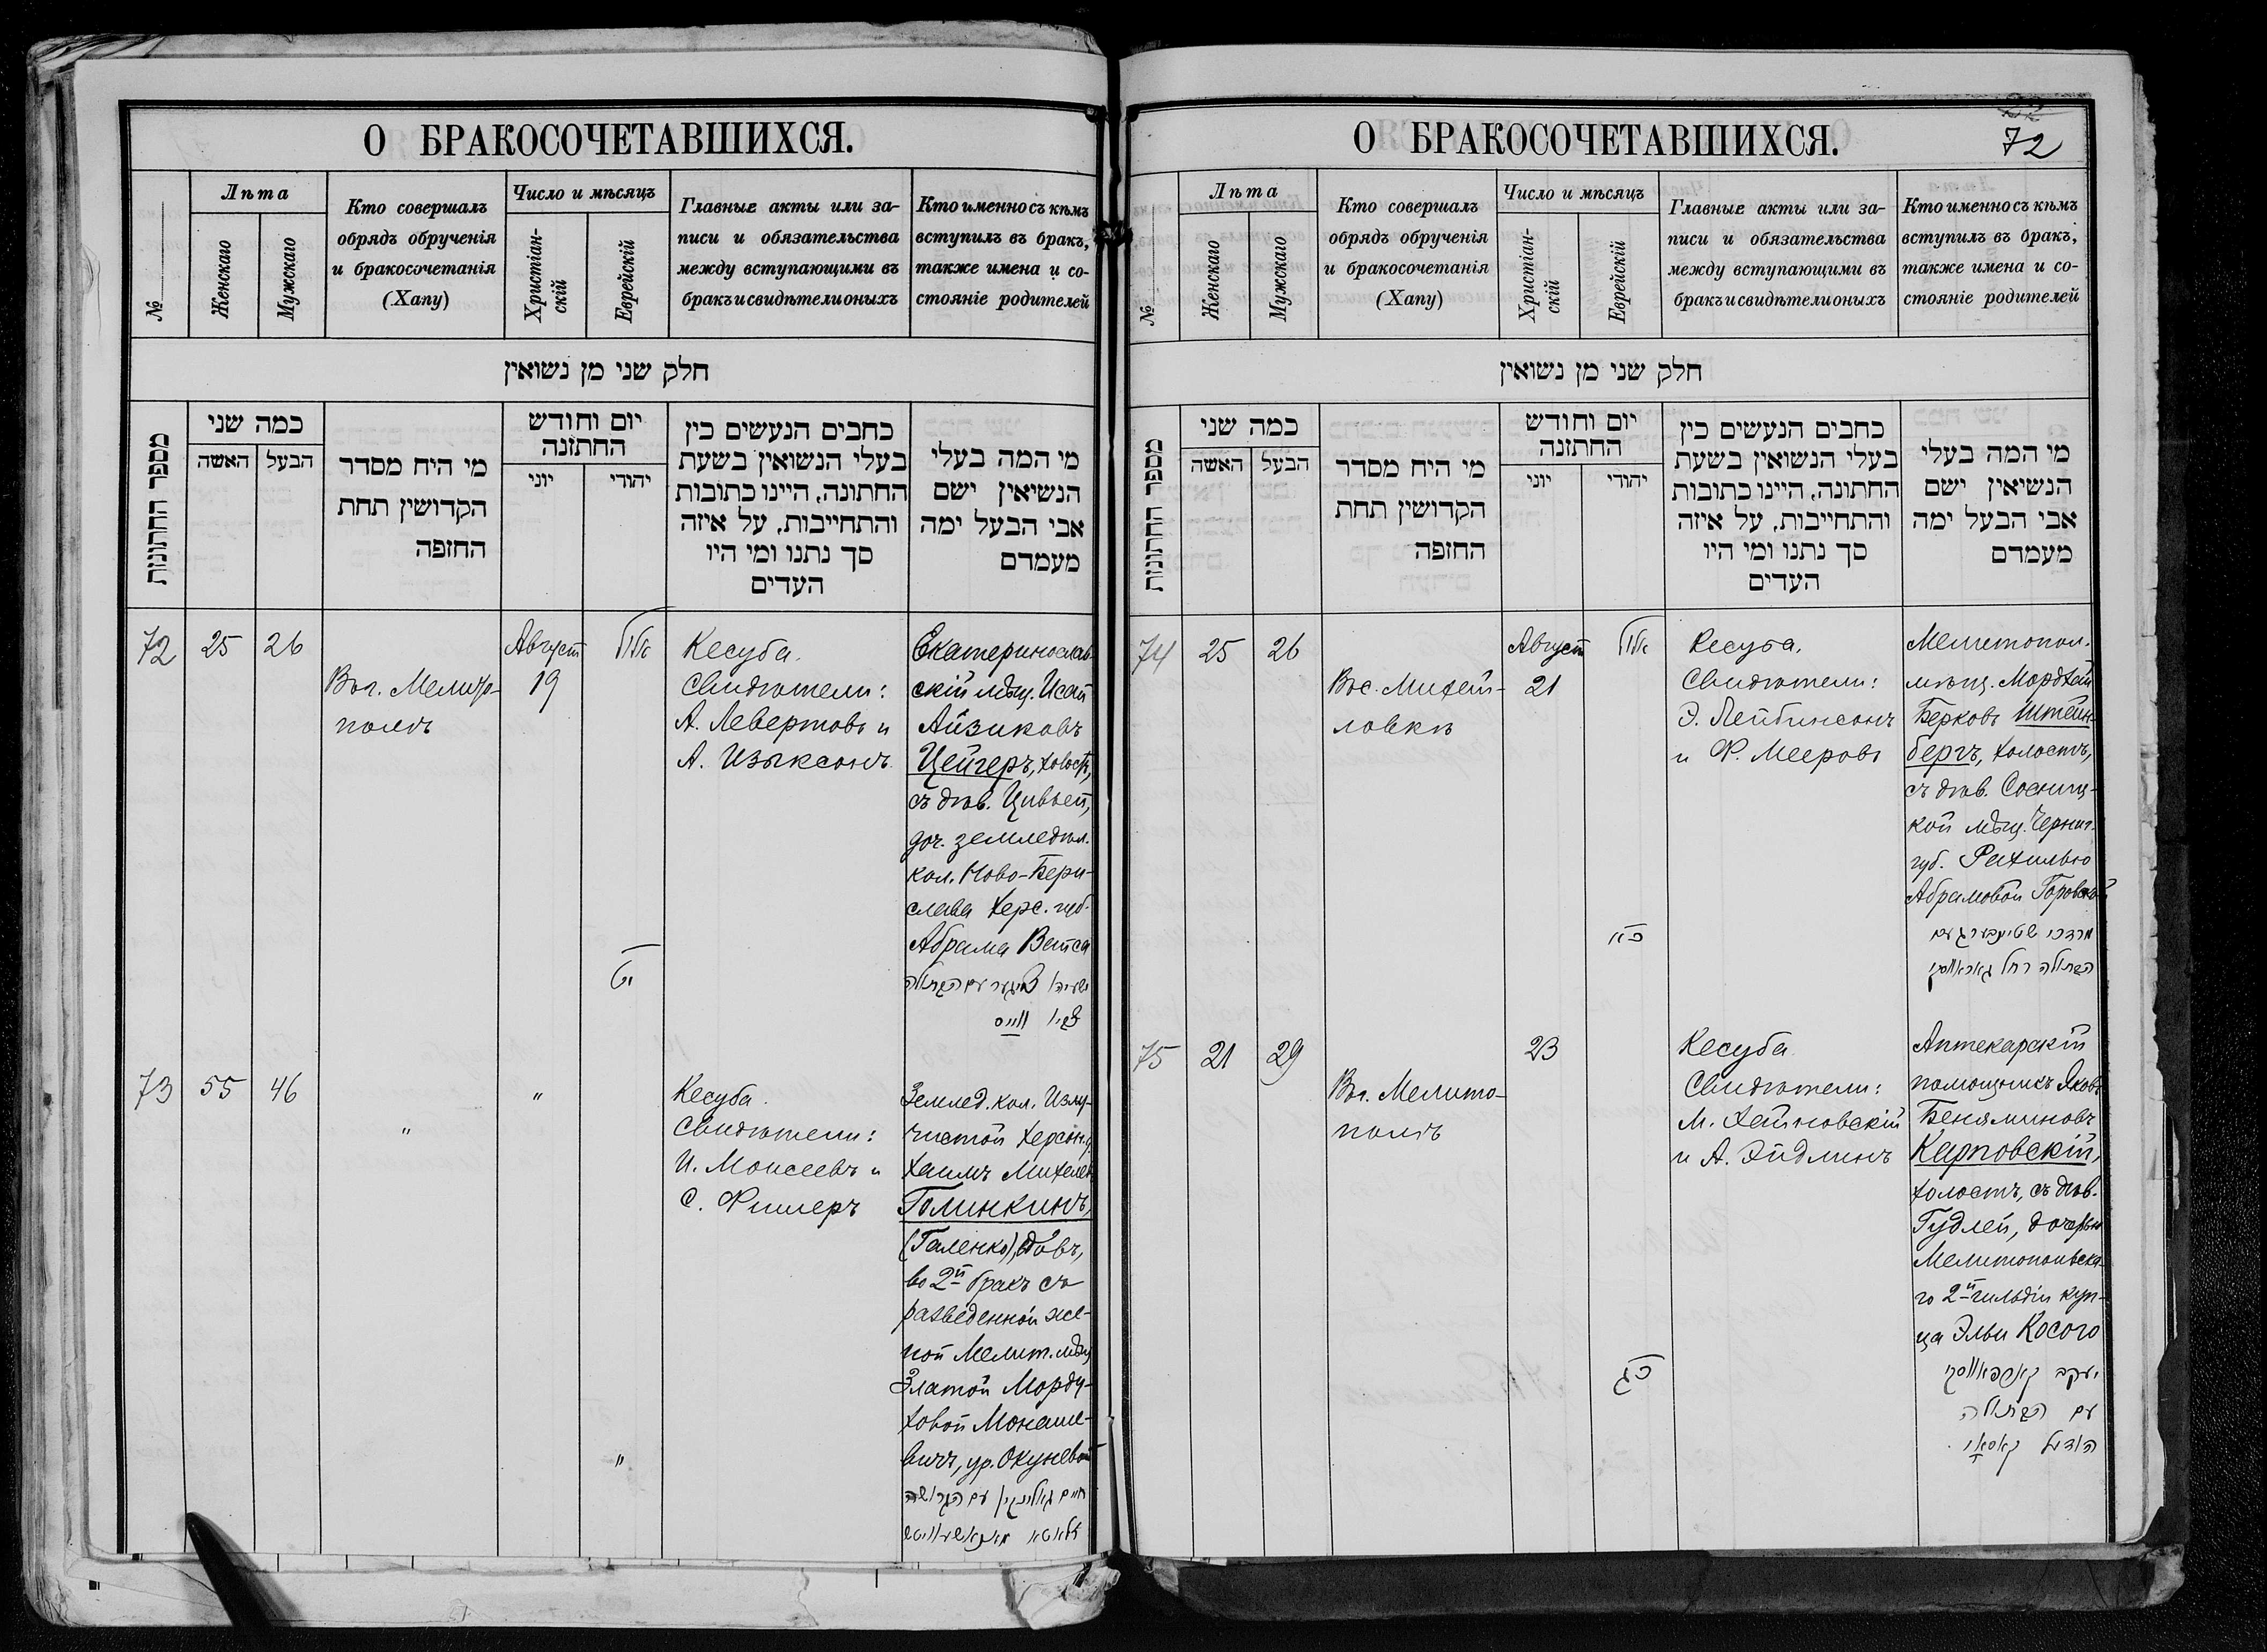 О БРАКОСОЧЕТАВШИХСЯ.
№
Лѣта
Женскаго
Мужскаго
Кто совершалъ
обрядъ обрученія
и бракосочетанія
(Хапу)
Число и мѣсяцъ
Христіан-
скій
Еврейскій
Главные акты или за-
писи и обязательства
между вступающими въ
бракъ и свидѣтели оныхъ
Кто именно съ кѣмъ
вступилъ въ бракъ,
также имена и со-
стояніе родителей
חלק שני מן נשואין
מספר החתונות
כמה שני
האשה
הבעל
מי היח מסדר
הקדושין תחת
החופה
יום וחודש
החתונה
יוני
יהודי
כחבים הנעשים כין
בעלי הנשואין בשעת
החתונה, היינו כתובות
והתחייבות, על איזה
סך נתנו ומי היו
העדים
מי המה בעלי
הנשיאין ישם
אבי הבעל ימה
מעמדם
72
25
26
Въ г. Мелито-
полѣ
Августъ
19
אלול
יט
Кесуба.
Свидѣтели:
А. Левертовъ и
А. Изыксонъ
Екатеринослав-
скій мѣщ. Исай
Айзиковъ
Цейгеръ, холостъ,
съ дѣв. Цивьей,
доч. земледѣл.
кол. Ново-Бери-
слава Херс. губ.
Абрама Вайса
ישעיהו צייגער עם הבתולה
צביו ווייס
73
55
46
"
"
"
Кесуба.
Свидѣтели:
И. Моисеевъ и
С. Фишеръ
Землед. кол. Излу-
чистой Херсон. г.
Хаимъ Михелев.
Голинкинъ,
(Галенко), вдовъ,
во 2й бракъ съ
разведенной же-
ной Мелит. мѣщ.
Златой Морду-
ховой Монаше-
вичъ, ур. Окуневой
חיים גאלינקין עם הגרושה
זלאטא מאנאשעוויטש
О БРАКОСОЧЕТАВШИХСЯ.
72
№
Лѣта
Женскаго
Мужскаго
Кто совершалъ
обрядъ обрученія
и бракосочетанія
(Хапу)
Число и мѣсяцъ
Христіан-
скій
Еврейскій
Главные акты или за-
писи и обязательства
между вступающими въ
бракъ и свидѣтели оныхъ
Кто именно съ кѣмъ
вступилъ въ бракъ,
также имена и со-
стояніе родителей
חלק שני מן נשואין
מספר החתונות
כמה שני
האשה
הבעל
מי היח מסדר
הקדושין תחת
החופה
יום וחודש
החתונה
יוני
יהודי
כחבים הנעשים כין
בעלי הנשואין בשעת
החתונה, היינו כתובות
והתחייבות, על איזה
סך נתנו ומי היו
העדים
מי המה בעלי
הנשיאין ישם
אבי הבעל ימה
מעמדם
74
25
26
Въ с. Михай-
ловкѣ
Августъ
21
אלול
Кесуба.
Свидѣтели:
Э. Лейбинсонъ
и Ф. Мееровъ
Мелитопол.
мѣщ. Мордхай
Берковъ Штейн-
бергъ, холостъ,
съ дѣв. Сосниц-
кой мѣщ. Черниг.
губ. Рахилью
Абрамовой Горовской
מרדכי שטיינבערג עם
הבתולה רחל גאראווסקי
75
21
29
Въ г. Мелито-
полѣ
23
כג
Кесуба
Свидѣтели:
М. Хайновскій
и А. Эйдлинъ
Аптекарскій
помощникъ Яковъ
Беняминовъ
Карповскій,
холостъ, съ дѣв.
Гудлей, дочерью
Мелитопольска-
го 2й гильдіи куп-
ца Эльи Косого
יעקב קארפאווסקי
עם הבתולה
הודיל קאסאי